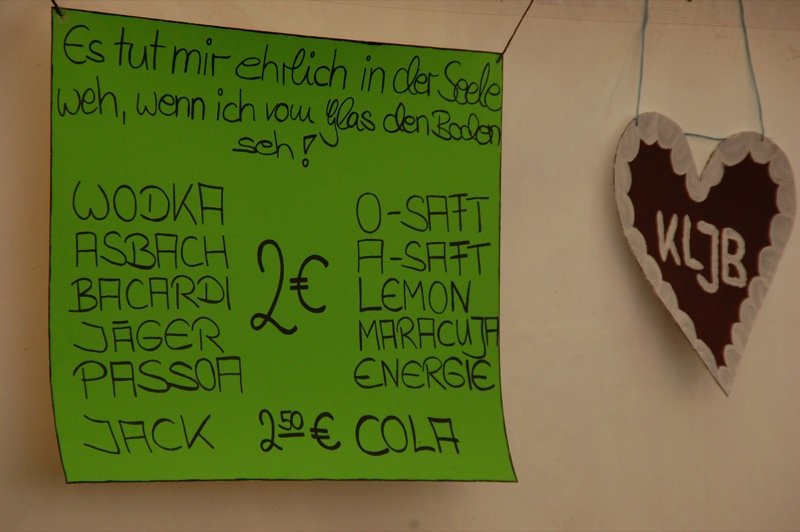 Es tut mir ehrlich in der Seele
weh, wenn ich vom Glas den Boden
seh!
WODKA
ASBACH
BACARDI
JÄGER
PASSOA
2€
O-SAFT
A-SAFT
LEMON
MARACUJA
ENERGIE
JACK 2 50 € COLA
KLJB